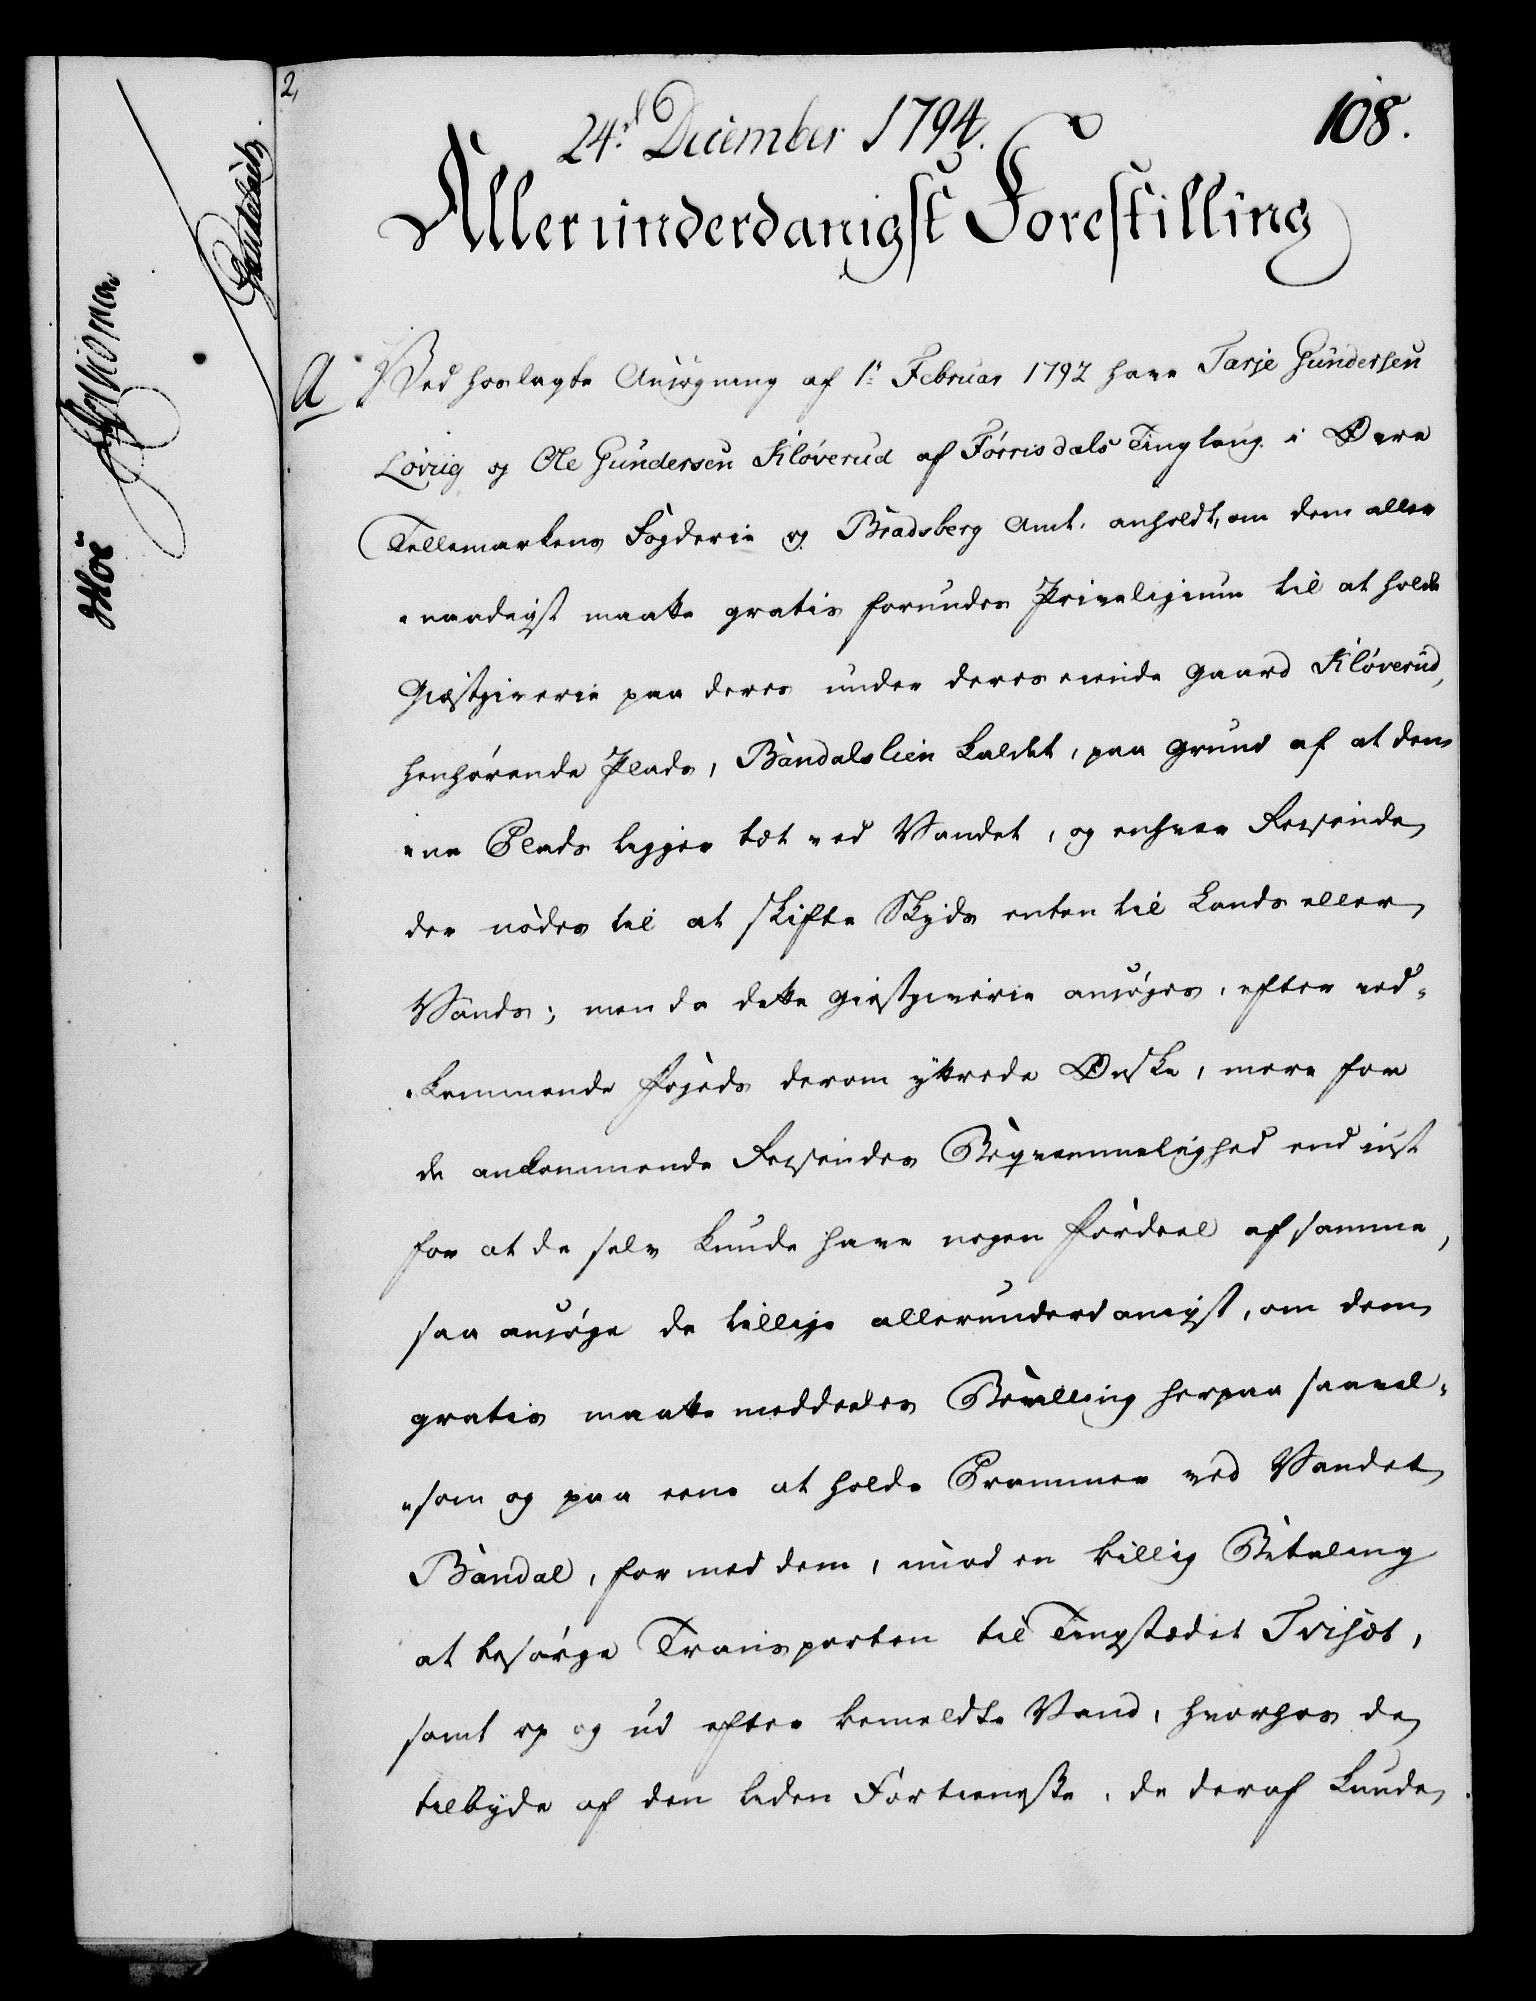 2,
24.d December 1794.
108.
Allerunderdanigst Forestilling
A
Ved hoslagte Ansøgning af 1te Februar 1792 have Tarje Gundersen
Løvüg og Ole Gundersen Kløverud af Førrisdals Tinglaug i Øvre
Tellemarkens Fogderie og Bradsberg Amt, anholdt, om dem aller
"naadigst maatte gratis forundes Priveligium til at holde
Giæstgiverie paa deres under deres eiende Gaard Kløverud,
henhørende Plads, Bandalslien kaldet, paa Grund af at den-
"ne Plads ligger tæt ved Vandet, og enhver Reisende
der nødes til at skifte Skyds enten til Lands eller
Vands; men da dette Giestgiverie ansøges, efter ved-
"kommende Fogeds derom yttrede Ønske, mere for
de ankommende Reisendes Beqvemmelighed end just
for at de selv kunde have nogen Fordeel af samme,
saa ansøge de tillige allerunderdanigst, om dem
gratis maatte meddeeles Bevilling herpaa saavel-
"som og paa eene at holde Prammer ved Vandet
Bandal, for med dem, imod en billig Betaling
at besørge Transporten til Tingstædet Trisæt,
samt op og ud efter bemeldte Vand, hvorhos de
tilbyde af den liden Fortieneste, de deraf kunde